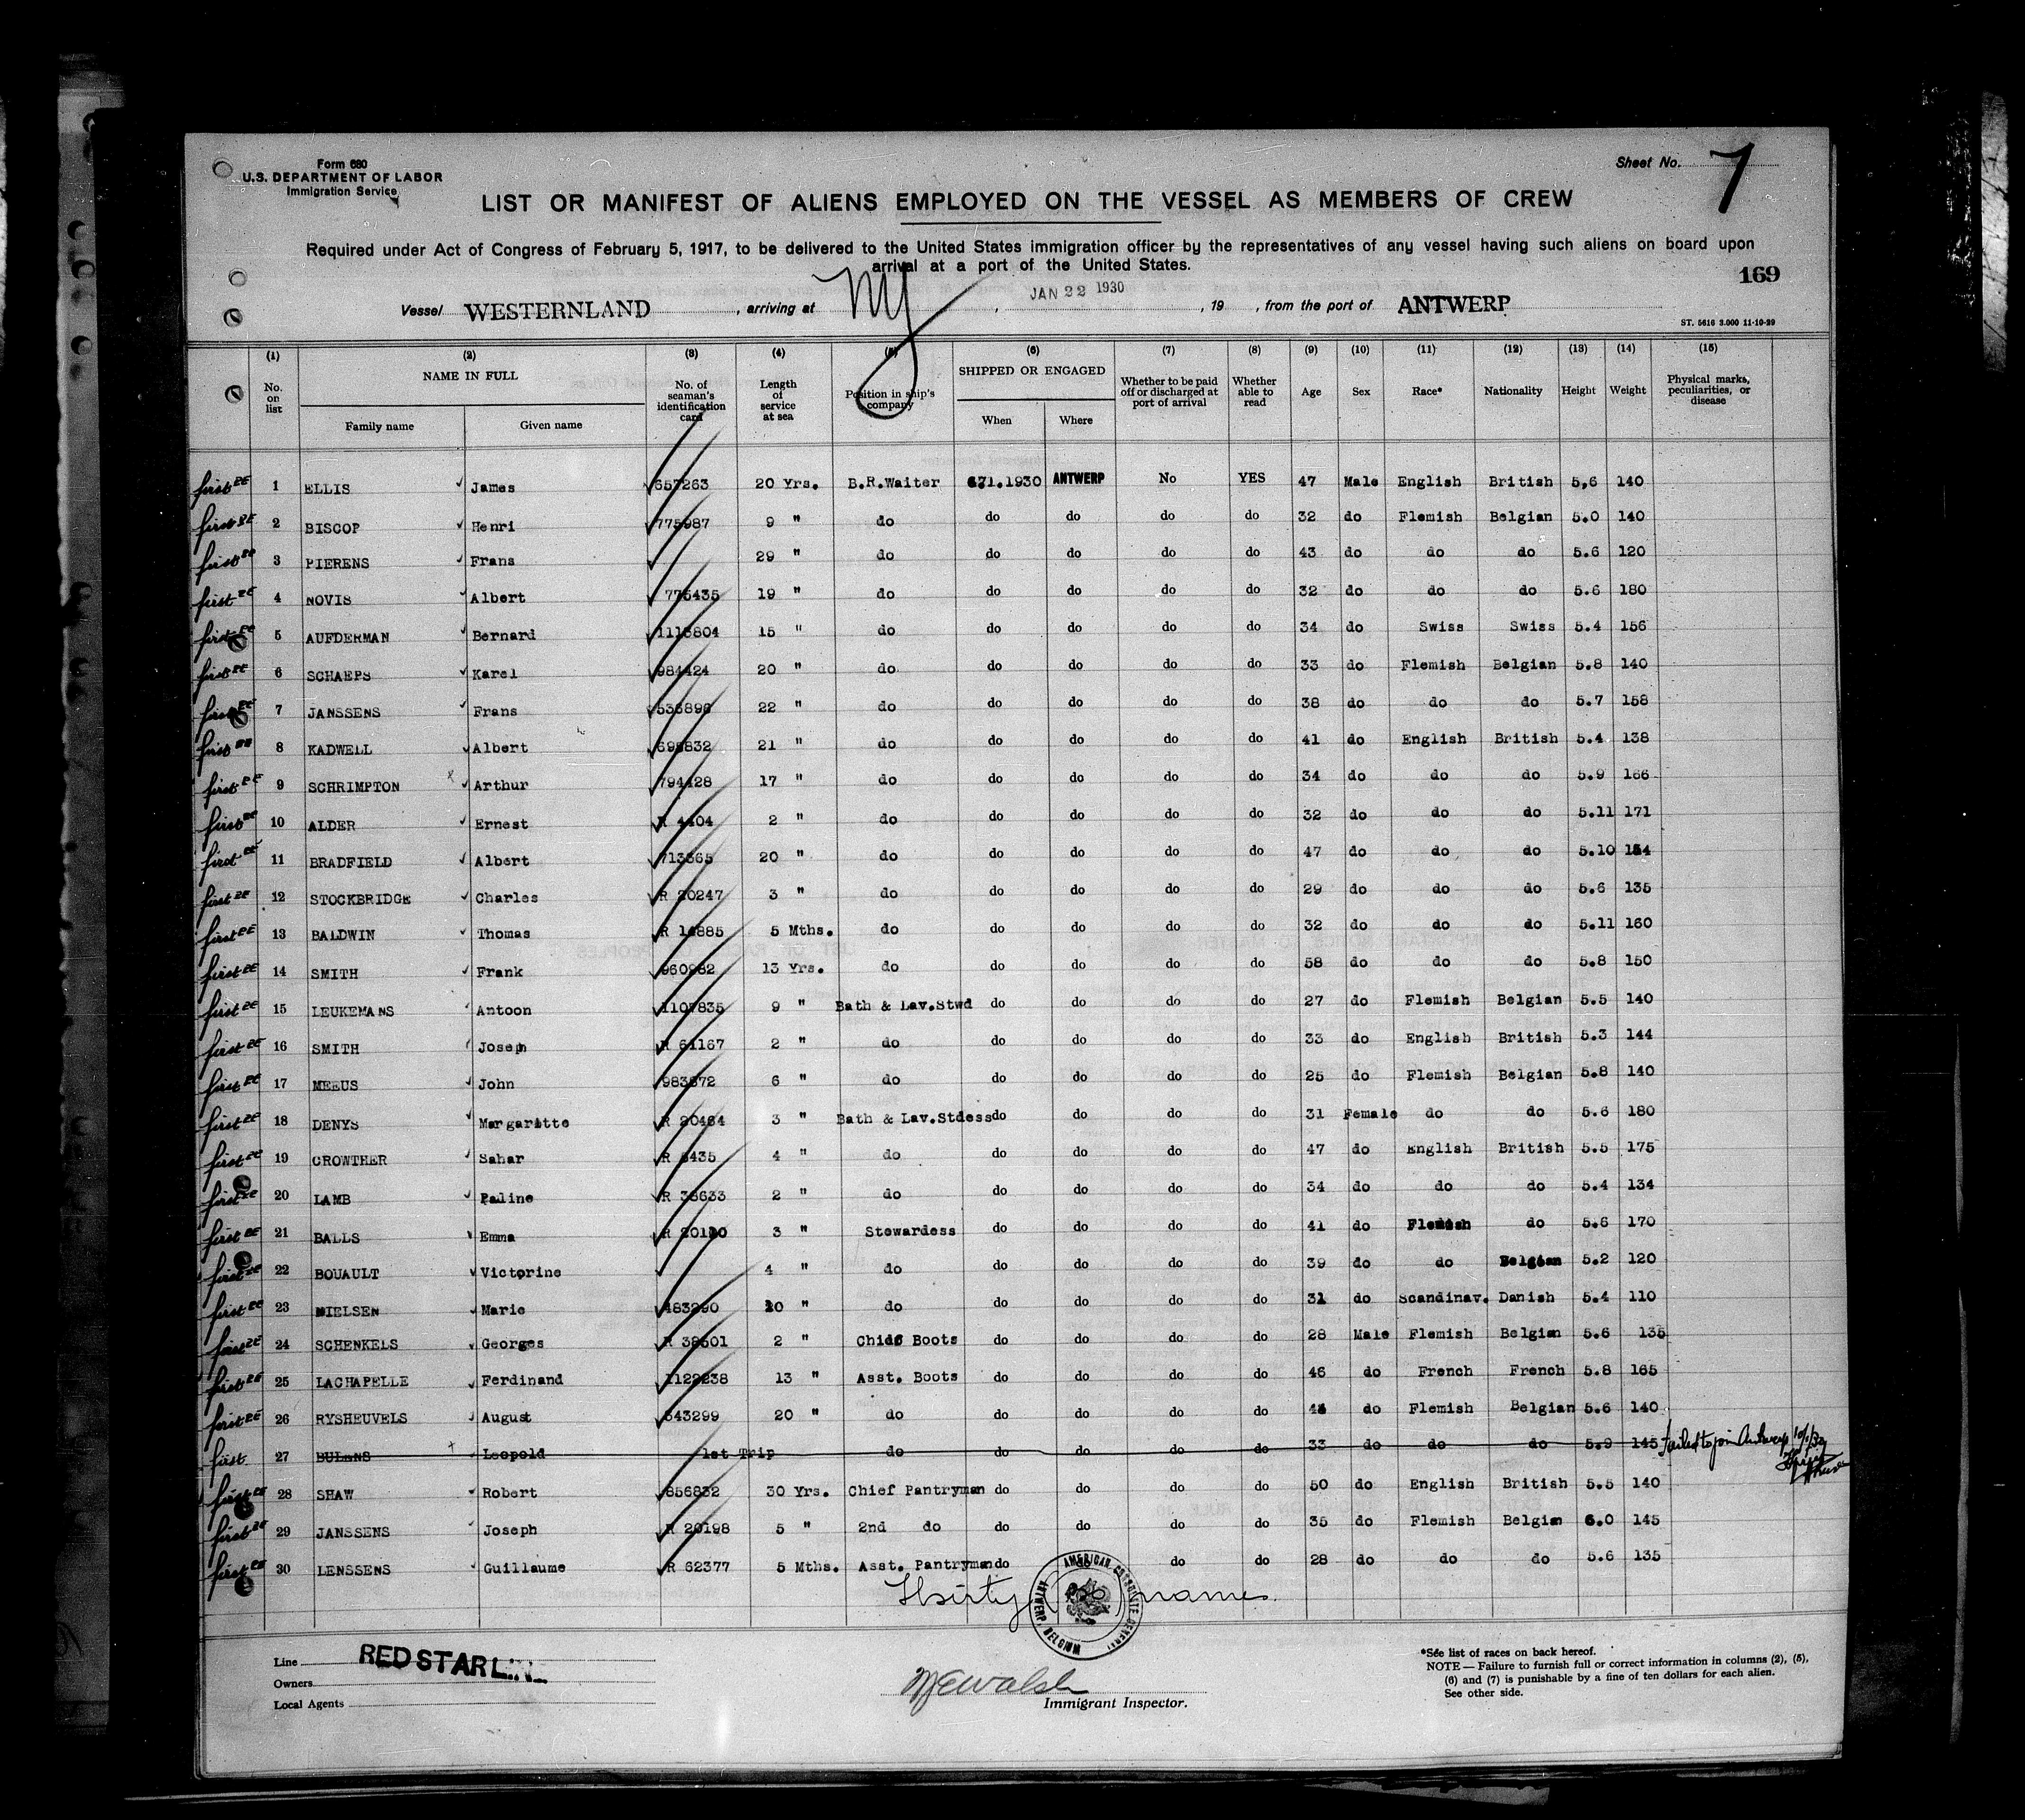 Form 680
U.S. DEPARTMENT OF LABOR
Immigration Service
Sheet No. 7
LIST OR MANIFEST OF ALIENS EMPLOYED ON THE VESSEL AS MEMBERS OF CREW
Required under Act of Congress of February 5, 1917, to be delivered to the United States immigration officer by the representatives of any vessel having such aliens on board upon
arrival at a port of the United States.
169
Vessel WESTERNLAND, arriving at NY, JAN 22 1930, 19 , from the port of ANTWERP
ST. 5616 3.000 11-10-29
(1) (2) (3) (4) (5) (6) (7) (8) (9) (10) (11) (12) (13) (14) (15)
No. on list NAME IN FULL Family name Given name No. of seaman's identification card Length of service at sea Position in ship's company SHIPPED OR ENGAGED When Where Whether to be paid off or discharged at port of arrival Whether able to read Age Sex Race* Nationality Height Weight Physical marks, peculiarities, or disease
first 1 ELLIS James 657263 20 Yrs. B.R.Waiter 6.1.1930 ANTWERP No YES 47 Male English British 5,6 140
first 2 BISCOP Henri 775987 9 " do do do do do 32 do Flemish Belgian 5.0 140
first 3 PIERENS Frans 29 " do do do do do 43 do do do 5.6 120
first 4 NOVIS Albert 775435 19 " do do do do do 32 do do do 5.6 180
first 5 AUFDERMAN Bernard 1113804 15 " do do do do do 34 do Swiss Swiss 5.4 156
first 6 SCHAEPS Karel 984424 20 " do do do do do 33 do Flemish Belgian 5.8 140
first 7 JANSSENS Frans 22 " do do do do do 38 do do do 5.7 158
first 8 KADWELL Albert 21 " do do do do do 41 do English British 5.4 138
first 9 SCHRIMPTON Arthur 794428 17 " do do do do do 34 do do do 5.9 166
first 10 ALDER Ernest R 4404 2 " do do do do do 32 do do do 5.11 171
first 11 BRADFIELD Albert 20 " do do do do do 47 do do do 5.10
first 12 STOCKBRIDGE Charles R 20247 3 " do do do do do 29 do do do 5.6 135
first 13 BALDWIN Thomas R 14885 5 Mths. do do do do do 32 do do do 5.11 160
first 14 SMITH Frank 960982 13 Yrs. do do do do do 58 do do do 5.8 150
first 15 LEUKEMANS Antoon 1107835 9 " Bath & Lav.Stwd do do do do 27 do Flemish Belgian 5.5 140
first 16 SMITH Joseph R 61167 2 " do do do do do 33 do English British 5.3 144
first 17 MEEUS John 6 " do do do do do 25 do Flemish Belgian 5.8 140
first 18 DENYS Margaritte R 20464 3 " Bath & Lav.Stdess do do do do 31 Female do do 5.6 180
first 19 CROWTHER Sahar 4 " do do do do do 47 do English British 5.5 175
first 20 LAMB Paline R 38633 2 " do do do do do 34 do do do 5.4 134
first 21 BALLS Emma 3 " Stewardess do do do do 41 do Flemish do 5.6 170
first 22 BOUAULT Victorine 4 " do do do do do 39 do do Belgian 5.2 120
first 23 NIELSEN Marie 483290 10 " do do do do do 31 do Scandinav. Danish 5.4 110
first 24 SCHENKELS Georges 2 " Chief Boots do do do do 28 Male Flemish Belgian 5.6 135
first 25 LACHAPELLE Ferdinand 1122238 13 " Asst. Boots do do do do 46 do French French 5.8 165
first 26 RYSHEUVELS August 643299 20 " do do do do do do Flemish Belgian 5.6 140
first 27 BULENS Leopold 1st Trip do do do do do 33 do do do 5.9 145 Failed to join Antwerp
first 28 SHAW Robert 856832 30 Yrs. Chief Pantryman do do do do 50 do English British 5.5 140
first 29 JANSSENS Joseph R 20198 5 " 2nd do do do do do 35 do Flemish Belgian 6.0 145
first 30 LENSSENS Guillaume R 62377 5 Mths. Asst. Pantryman do do do do 28 do do do 5.6 135
Thirty (30) names
AMERICAN CONSULATE GENERAL ANTWERP, BELGIUM
Line RED STAR LINE
Owners
Local Agents
Immigrant Inspector.
*See list of races on back hereof.
NOTE — Failure to furnish full or correct information in columns (2), (5),
(6) and (7) is punishable by a fine of ten dollars for each alien.
See other side.